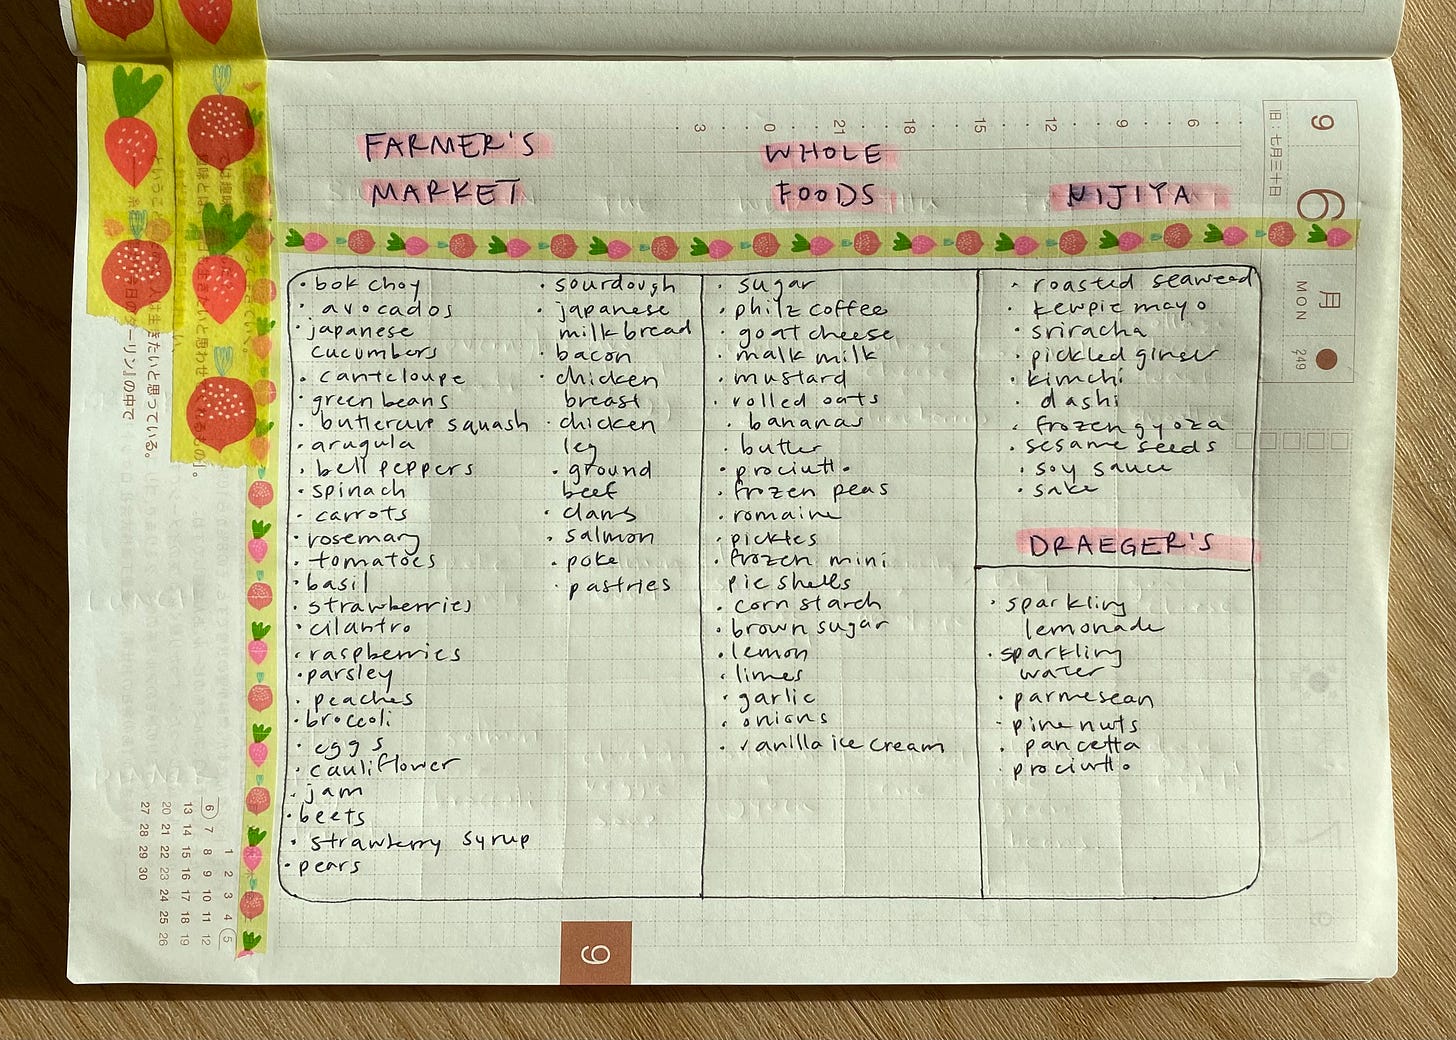 FARMER'S
MARKET
· bok choy
· avocados
· japanese
cucumbers
· canteloupe
· green beans
· buttercup squash
· arugula
· bell peppers
· spinach
· carrots
· rosemary
· tomatoes
· basil
· strawberries
· cilantro
· raspberries
· parsley
· peaches
· broccoli
· eggs
· cauliflower
· jam
· beets
· strawberry syrup
· pears
· sourdough
· japanese
milk bread
· bacon
· chicken
breast
· chicken
leg
· ground
beef
· clams
· salmon
· poke
· pastries
WHOLE
FOODS
· sugar
· philz coffee
· goat cheese
· malk milk
· mustard
· rolled oats
· bananas
· butter
· prociutto
· frozen peas
· romaine
· pickles
· frozen mini
pie shells
· corn starch
· brown sugar
· lemon
· limes
· garlic
· onions
· vanilla ice cream
NIJIYA
· roasted seaweed
· kewpie mayo
· sriracha
· pickled ginger
· kimchi
· dashi
· frozen gyoza
· sesame seeds
· soy sauce
· sake
DRAEGER'S
· sparkling
lemonade
· sparkling
water
· parmesean
· pine nuts
· pancetta
· prociutto
9
6
月
MON
249
旧:七月三十日
3 0 21 18 15 12 9 6
1 2 3 4 5
6 7 8 9 10 11 12
13 14 15 16 17 18 19
20 21 22 23 24 25 26
27 28 29 30
人は生きたいと思っている。
今日のダーリン』の中で
9